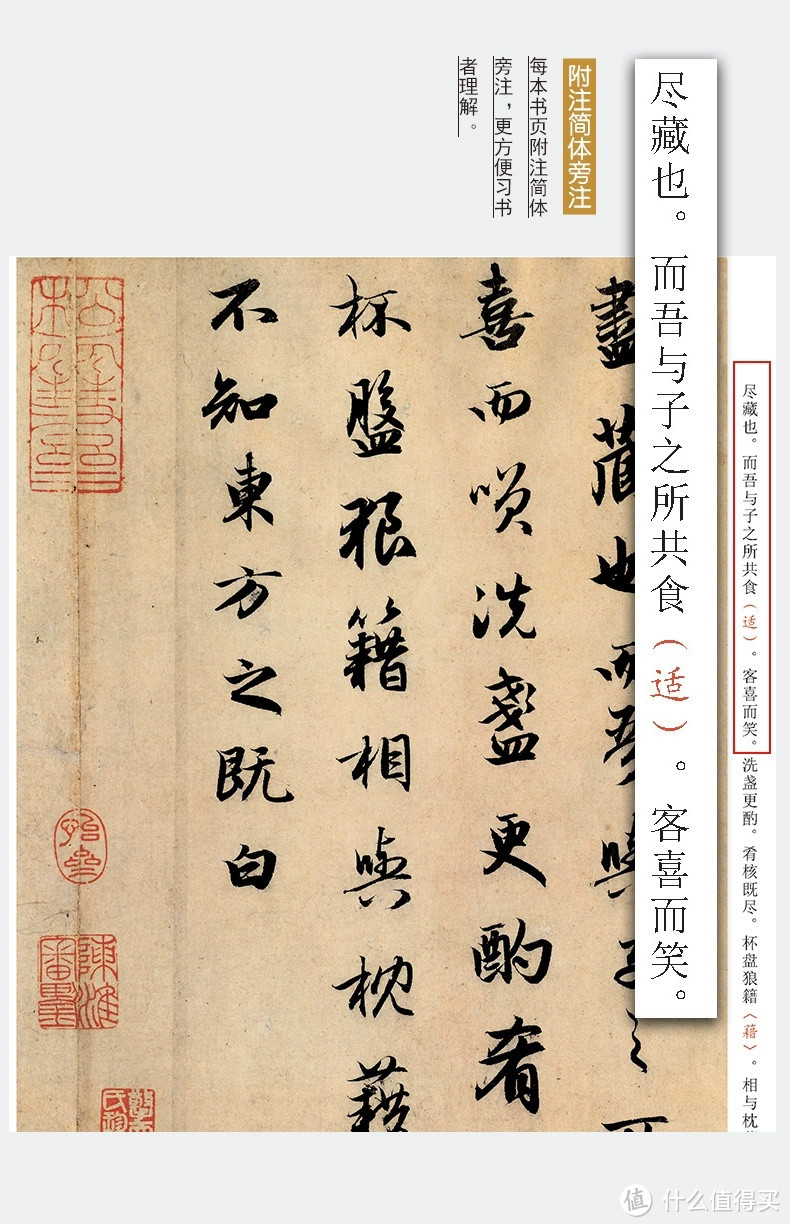 尽藏也。而吾与子之所共食（适）。客喜而笑。
附注简体旁注
每本书页附注简体
旁注，更方便习书
者理解。
尽藏也。而吾与子之所共食（适）。客喜而笑。洗盏更酌。肴核既尽。杯盘狼籍〈藉〉。相与枕
盡藏也而吾與子之
喜而唉洗盞更酌肴
杯盤狼籍相與枕藉
不知東方之既白
值 什么值得买